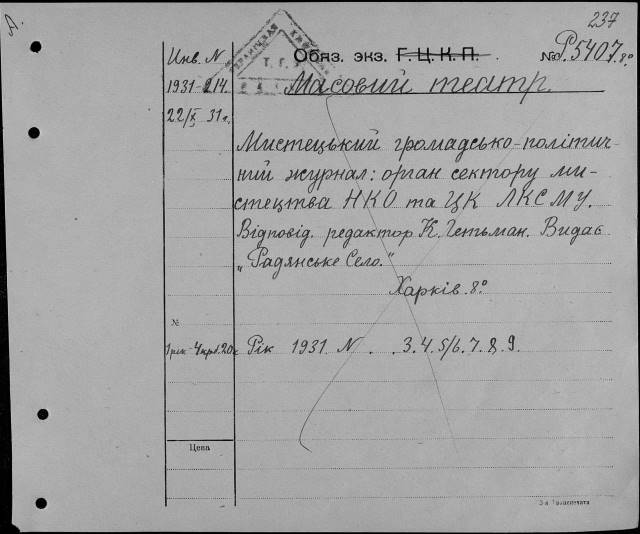 237
Инв. N
Обяз. экз. Г. Ц. К. П.
№ Р5407.8°
1931-214.
Масовий театр.
22/X 31 г.
Мистецький громадсько-політич-
ний журнал: орган сектору ми-
стецтва НКО та ЦК ЛКСМУ.
Відповід. редактор К. Гетьман. Видає
„Радянське Село."
Харків. 8°
№
1 рік - 4 крб. 20 к
Рік 1931. N . . 3. 4. 5/6. 7. 8. 9.
Цена